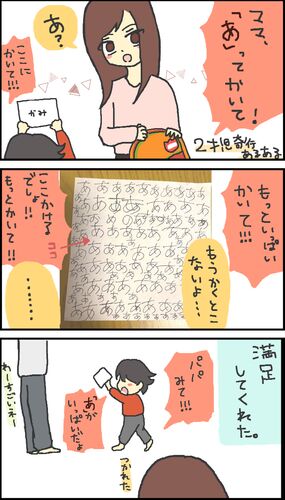 ママ、
「あ」ってかいて!
あ?
ここに
かいて!!!
かみ
2才児奇行
あるある
もっといっぱい
かいて!!!
もうかくとこ
ないよ…
ここかける
でしょ!!
もっとかいて!!
ココ
………
満足
してくれた。
パパ
みて!!!
「あ」が
いっぱいだよ
わーすごいねー
つかれた